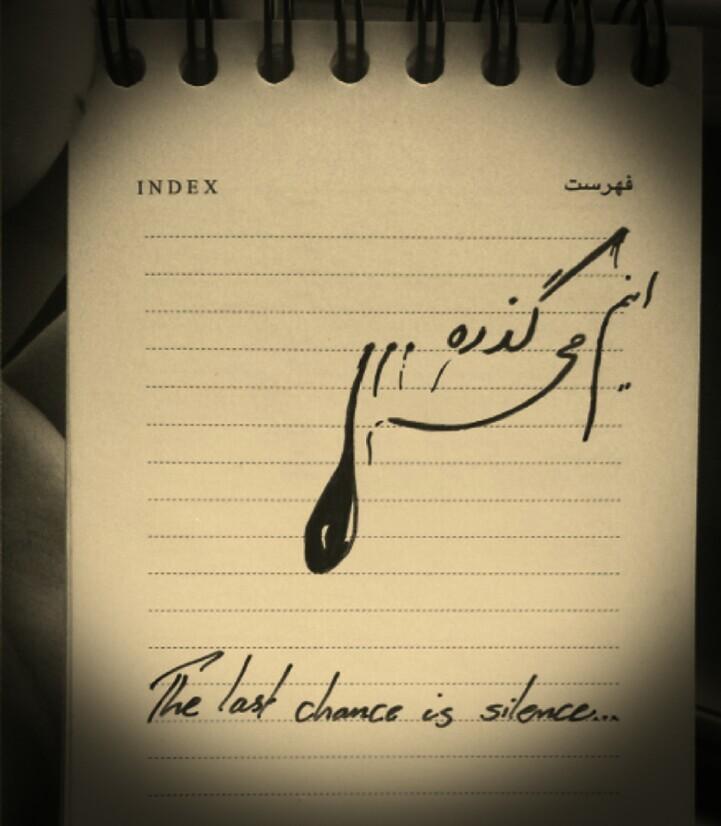 INDEX فهرست
اینم می گذره...
The last chance is silence...